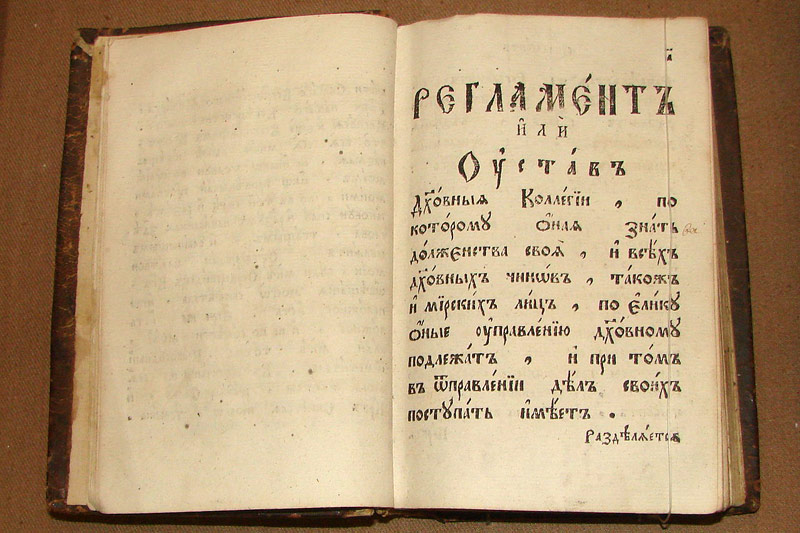 РЕГЛАМЕ́НТЪ
и҆лѝ
Оу҆ста́въ
Дх҃о́вныѧ Колле́гїи , по
кото́рому ѻ҆́наѧ зна́ть
до́лженства своѧ̀ , и҆ всѣ́хъ
дх҃о́вныхъ чинѡ́въ , та́кожъ
и҆ мїрски́хъ ли́цъ , по є҆ли́кꙋ
ѻ҆́ные оу҆правле́нїю дх҃о́вномꙋ
подлежа́тъ , и҆ при то́мъ
въ ѿправле́нїи дѣ́лъ свои́хъ
постꙋпа́ть и҆мѣ́етъ .
Раздѣлѧ́етсѧ